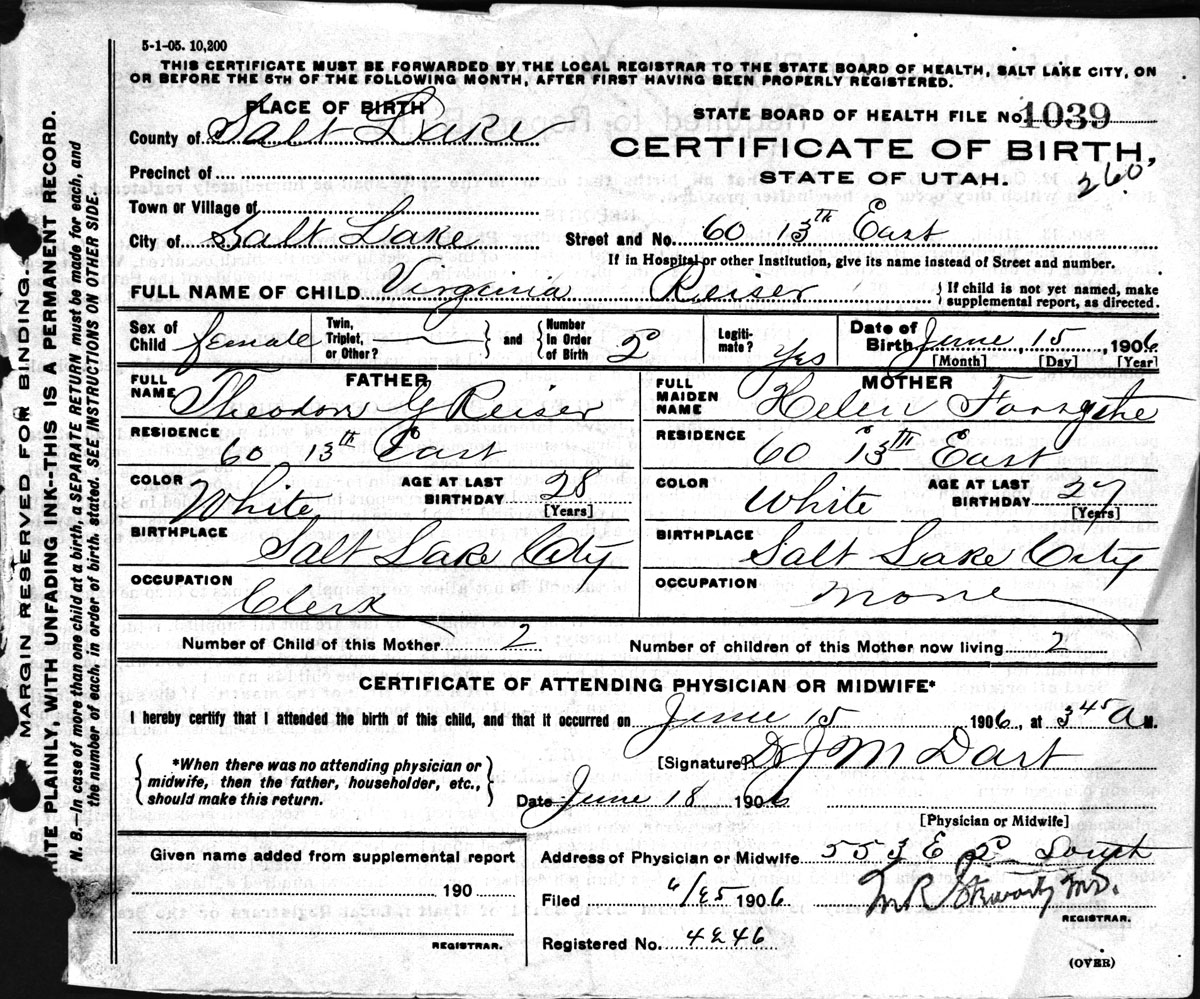 5-1-05. 10,200
THIS CERTIFICATE MUST BE FORWARDED BY THE LOCAL REGISTRAR TO THE STATE BOARD OF HEALTH, SALT LAKE CITY, ON
OR BEFORE THE 5TH OF THE FOLLOWING MONTH, AFTER FIRST HAVING BEEN PROPERLY REGISTERED.
PLACE OF BIRTH
STATE BOARD OF HEALTH FILE No. 1039
County of Salt Lake
CERTIFICATE OF BIRTH,
STATE OF UTAH.
260
Precinct of
Town or Village of
City of Salt Lake Street and No. 60 13th East
If in Hospital or other Institution, give its name instead of Street and number.
FULL NAME OF CHILD Virginia Reiser { If child is not yet named, make
supplemental report, as directed.
Sex of Child female Twin, Triplet, or Other? and Number In Order of Birth 2d Legiti-mate? Yes Date of Birth June, 15, 1906
[Month] [Day] [Year]
FULL NAME FATHER Theodore G Reiser
FULL MAIDEN NAME MOTHER Helen Forsythe
RESIDENCE 60 13th East
RESIDENCE 60 13th East
COLOR White AGE AT LAST BIRTHDAY 28 [Years]
COLOR White AGE AT LAST BIRTHDAY 27 [Years]
BIRTHPLACE Salt Lake City
BIRTHPLACE Salt Lake City
OCCUPATION Clerk
OCCUPATION none
Number of Child of this Mother 2 Number of children of this Mother now living 2
CERTIFICATE OF ATTENDING PHYSICIAN OR MIDWIFE*
I hereby certify that I attended the birth of this child, and that it occurred on June 15 1906, at 3 45 A M.
{ *When there was no attending physician or
midwife, then the father, householder, etc.,
should make this return. }
[Signature] Dr J M Dart
Date June 18 1906
[Physician or Midwife]
Given name added from supplemental report
190
REGISTRAR.
Address of Physician or Midwife 553 E 2d South
Filed 6/25 1906
M.R. Stewart M.D.
REGISTRAR.
Registered No. 4246
(OVER)
MARGIN RESERVED FOR BINDING.
WRITE PLAINLY, WITH UNFADING INK--THIS IS A PERMANENT RECORD.
N. B.—In case of more than one child at a birth, a SEPARATE RETURN must be made for each, and
the number of each, in order of birth, stated. SEE INSTRUCTIONS ON OTHER SIDE.